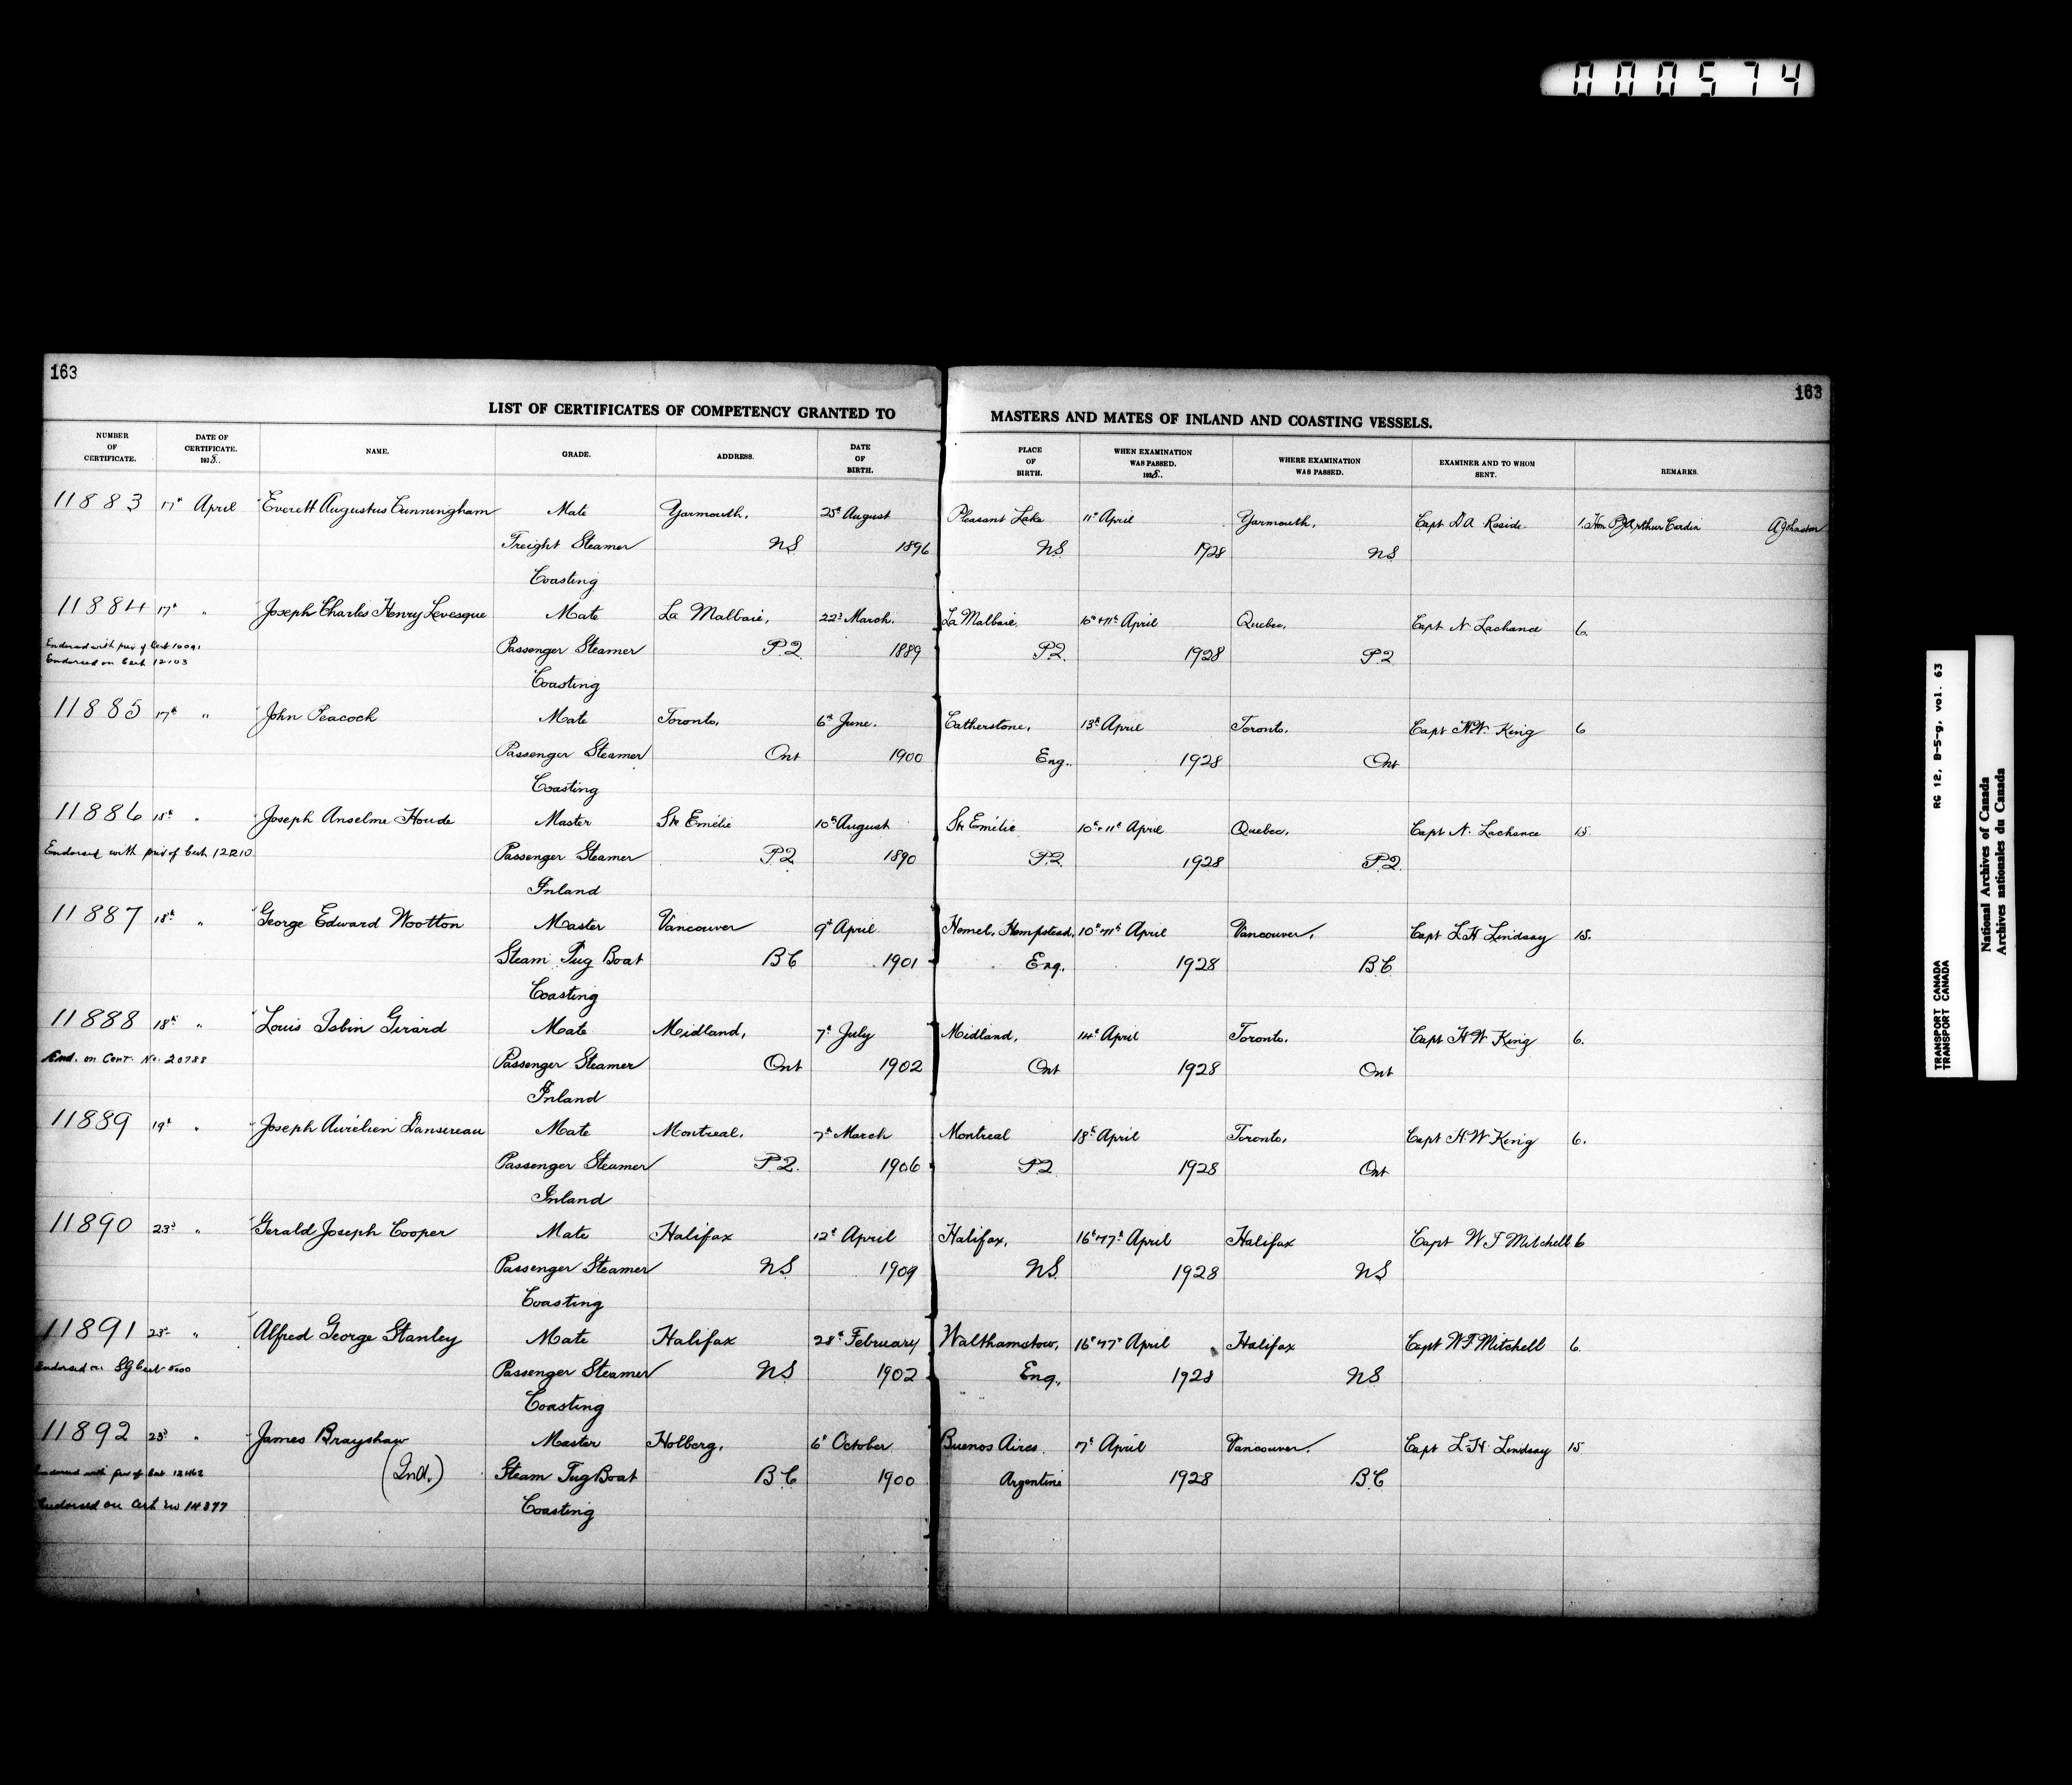 000574
163
163
LIST OF CERTIFICATES OF COMPETENCY GRANTED TO MASTERS AND MATES OF INLAND AND COASTING VESSELS.
NUMBER OF CERTIFICATE. DATE OF CERTIFICATE. 1928. NAME. GRADE. ADDRESS. DATE OF BIRTH. PLACE OF BIRTH. WHEN EXAMINATION WAS PASSED. 1928. WHERE EXAMINATION WAS PASSED. EXAMINER AND TO WHOM SENT. REMARKS.
11883 17th April Everett Augustus Cunningham Mate Yarmouth, 25th August Pleasant Lake 11th April Yarmouth, Capt D A 1. Hon P J Arthur Cardin A Johnston
Freight Steamer NS 1896 NS 1928 NS
Coasting
11884 17th " Joseph Charles Henry Levesque Mate La Malbaie, 22d March. La Malbaie. 10th & 11th April Quebec, Capt N. Lachance 6.
Endorsed with priv of Cert Passenger Steamer P.Q. 1889 P.Q. 1928 P.Q.
Endorsed on Cert 12103
Coasting
11885 17th " John Peacock Mate Toronto, 6th June. Catherstone, 13th April Toronto, Capt H.W. King 6
Passenger Steamer Ont 1900 Eng. 1928 Ont
Coasting
11886 18th " Joseph Anselme Houde Master Ste Emélie 10th August Ste Emélie 10th & 11th April Quebec, Capt N. Lachance 15
Endorsed with priv of Cert 12210 Passenger Steamer P.Q. 1890 P.Q. 1928 P.Q.
Inland
11887 18th " George Edward Wootton Master Vancouver 9th April Hemel, Hempstead, 10th & 11th April Vancouver, Capt L.H. Lindsay 15.
Steam Tug Boat B.C 1901 Eng. 1928 B.C
Coasting
11888 18th " Louis Isbin Girard Mate Midland, 7th July Midland, 14th April Toronto, Capt H W King 6.
End. on Cert. No. 20788 Passenger Steamer Ont 1902 Ont 1928 Ont
Inland
11889 19th " Joseph Aurélien Dansereau Mate Montreal, 7th March Montreal 18th April Toronto, Capt H.W King 6.
Passenger Steamer P.Q. 1906 P.Q 1928 Ont
Inland
11890 23d " Gerald Joseph Cooper Mate Halifax 12th April Halifax, 16th & 17th April Halifax Capt W F Mitchell 6
Passenger Steamer NS 1909 NS. 1928 NS
Coasting
11891 23d " Alfred George Stanley Mate Halifax 28th February Walthamstow, 16th & 17th April Halifax Capt W F Mitchell 6.
Endorsed on SG Cert 5000 Passenger Steamer NS 1902 Eng. 1928 NS
Coasting
11892 23d " James Brayshaw Master Holberg, 6th October Buenos Aires. 7th April Vancouver, Capt L.H. Lindsay 15
Endorsed with priv of Cert 12462 (Ind.) Steam Tug Boat B.C 1900 Argentine 1928 B.C
Endorsed on Cert No 14877 Coasting
TRANSPORT CANADA RG 12, B-5-g, vol. 63
TRANSPORT CANADA
National Archives of Canada
Archives nationales du Canada